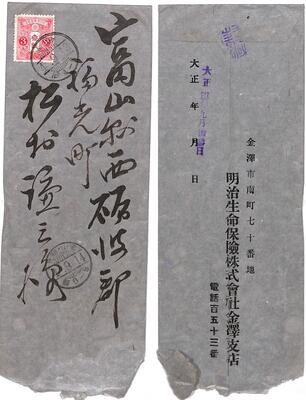 富山縣西礪波郡
福光町
松村謙三様
3
大正 年九月 日
大正 年 月 日
金澤市南町七十番地
明治生命保險株式會社金澤支店
電話百五十三番